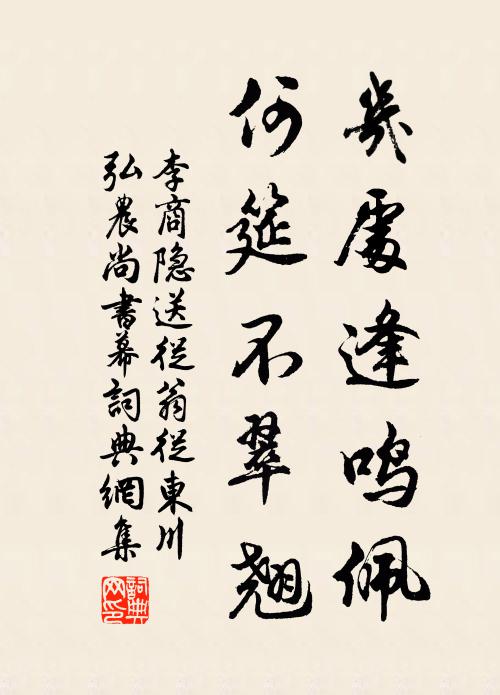 幾處逢鳴佩
何筵不翠翹
李商隐送從翁從東川
弘農尚書幕詞典網集
詞典網印